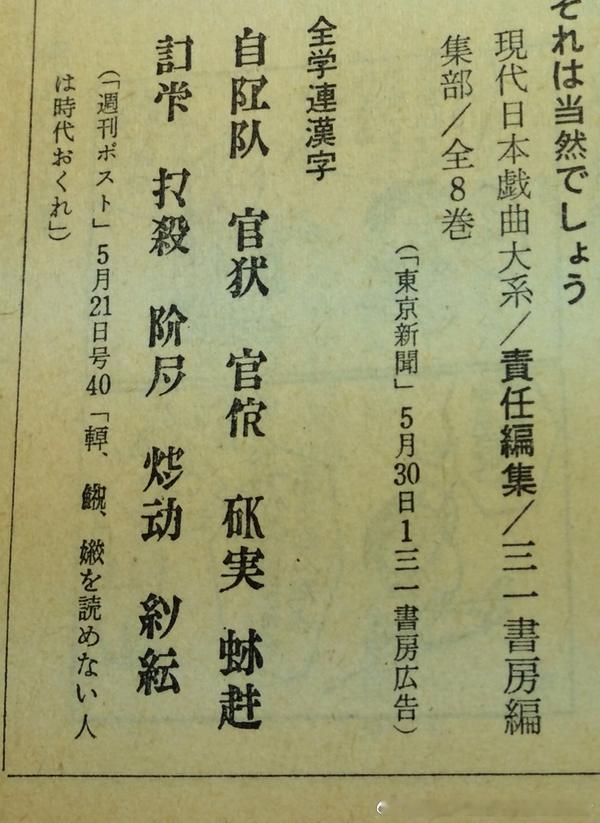 それは当然でしょう
現代日本戯曲大系/責任編集/三一書房編
集部/全8巻
(「東京新聞」5月30日1三一書房広告)
全学連漢字
自队 官 官 実
殺 阶 动
(「週刊ポスト」5月21日号40「、、を読めない人
は時代おくれ」)